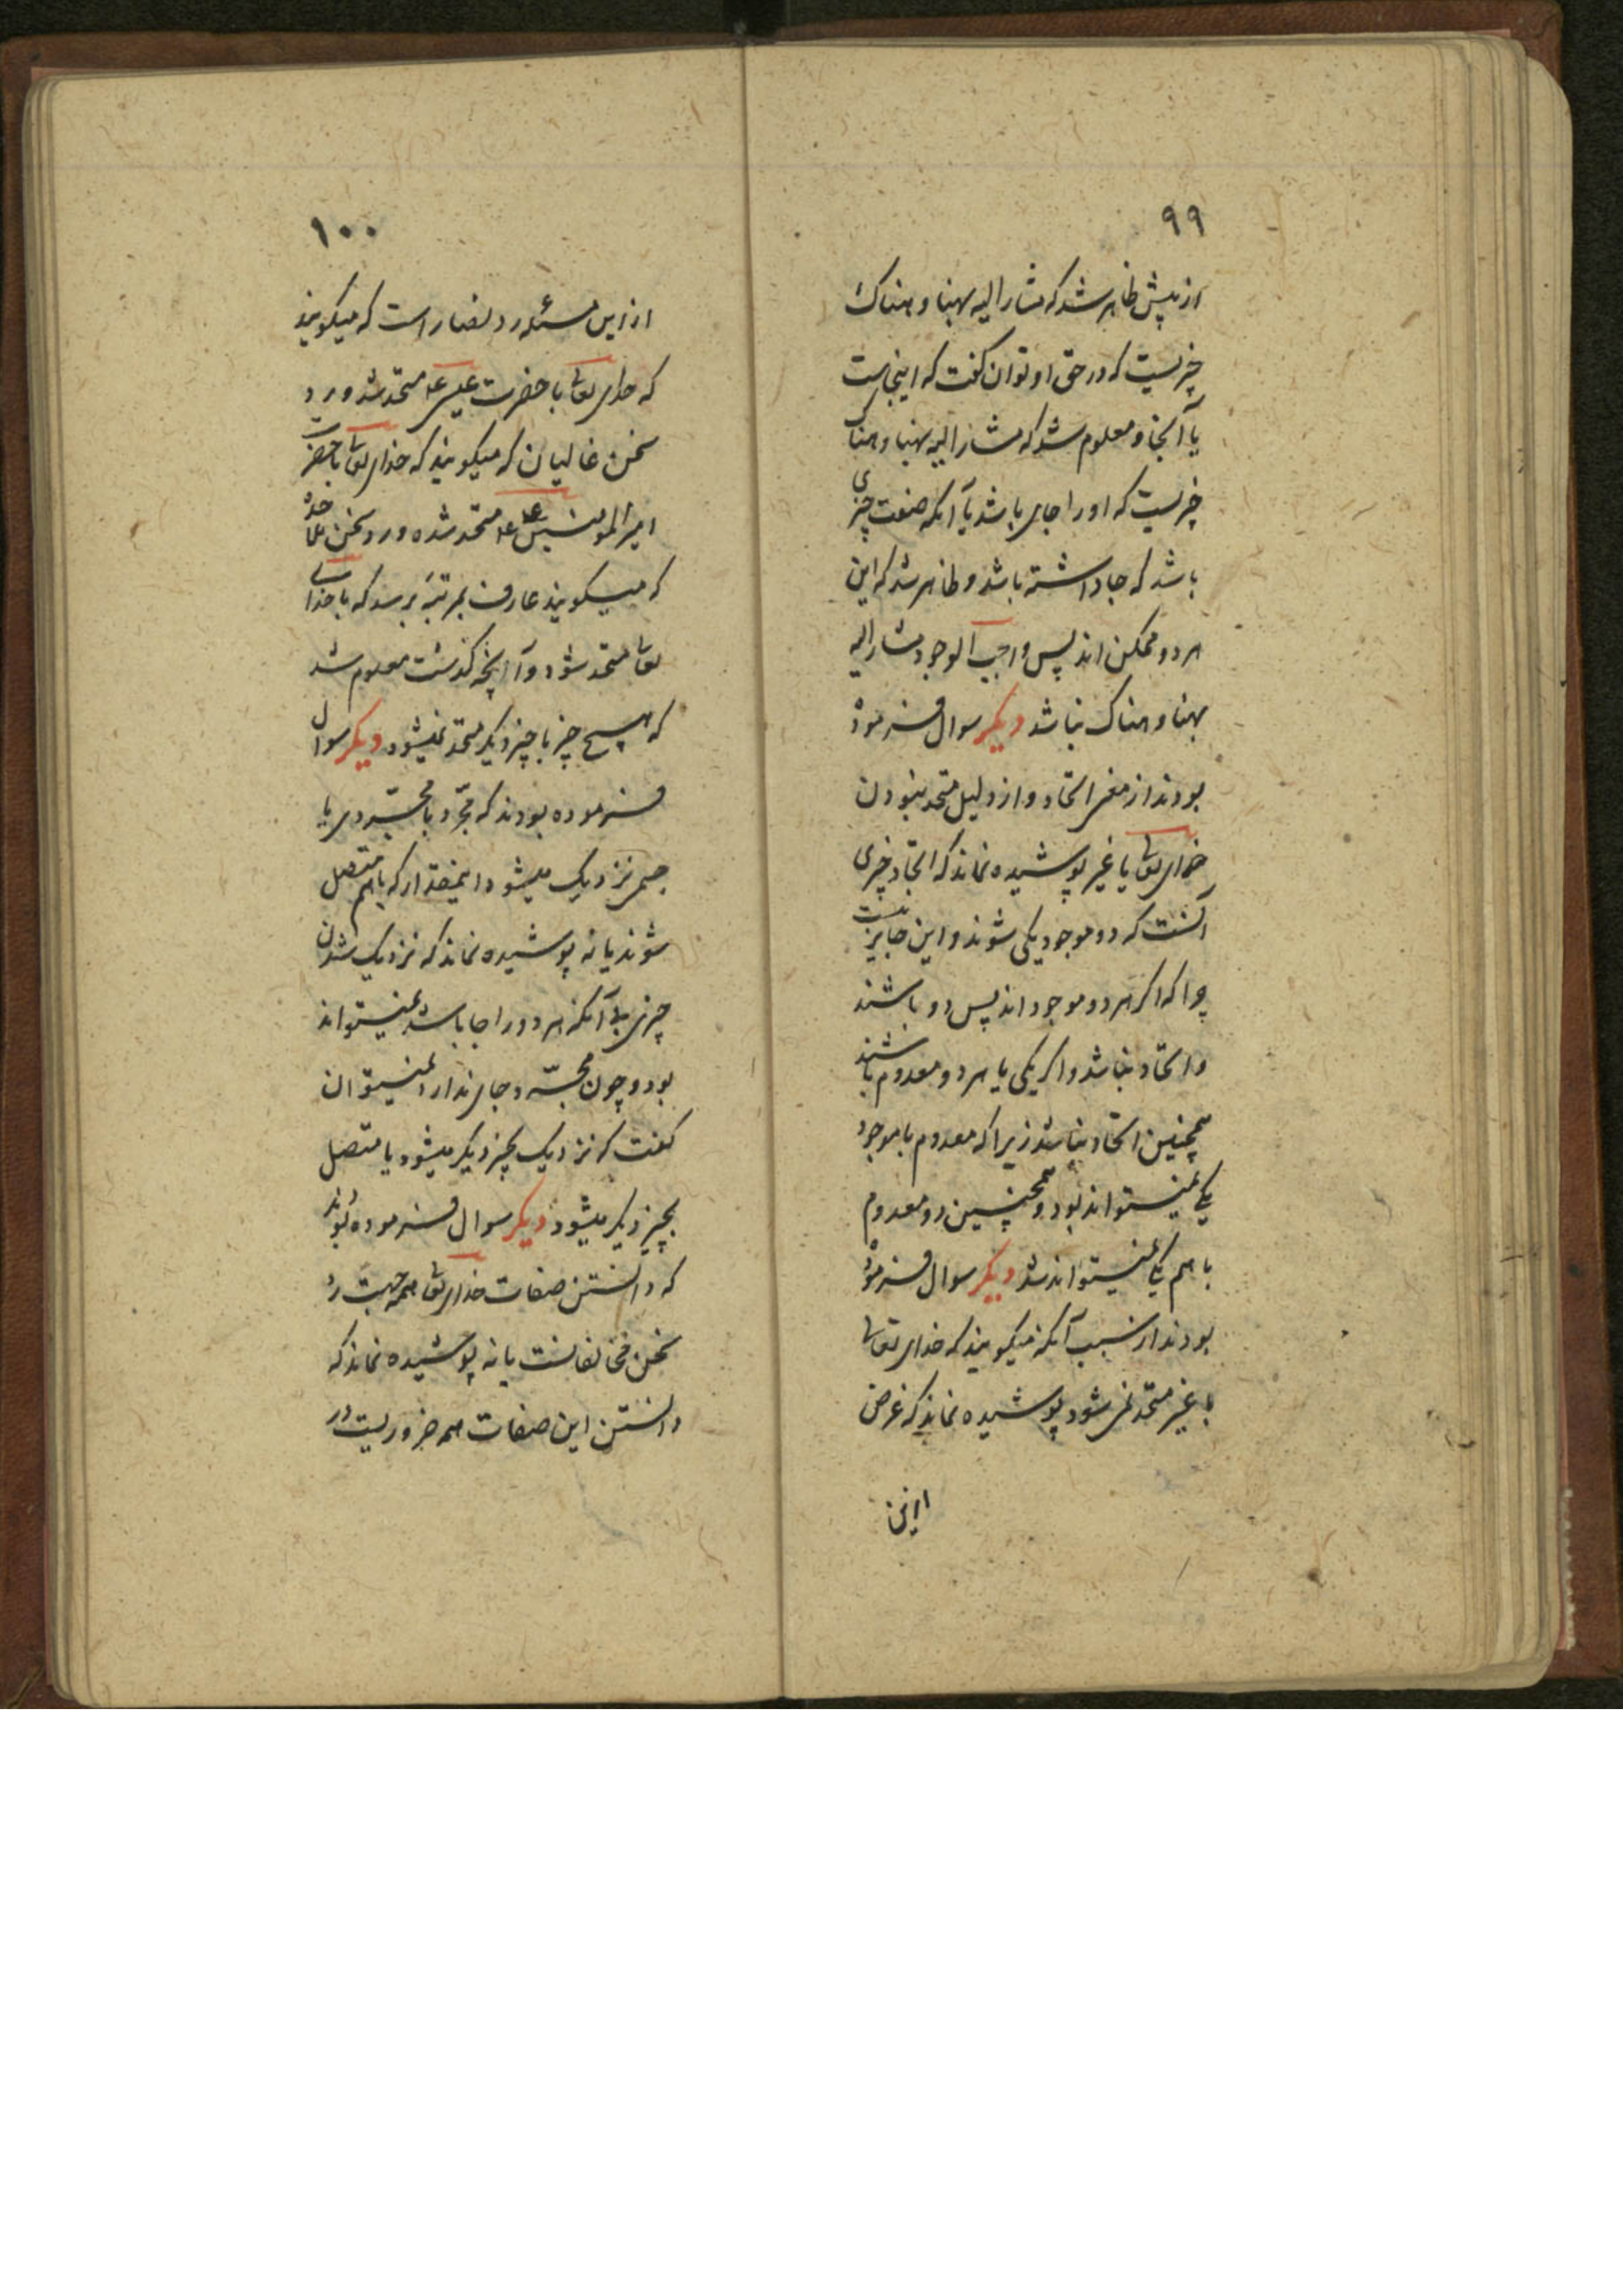 ۹۹
از پیش ظاهر شد که مشار الیه بهنا و هناک
چیزیست که در حق او توان گفت که اینجاست
یا آنجا و معلوم شد که مشار الیه بهنا و هناک
چیزیست که او را جای باشد یا آنکه صفت چیزی
باشد که جا داشته باشد و ظاهر شد که این
هر دو ممکن اند پس واجب الوجود مشار الیه
بهنا و هناک نباشد دیگر سوال فرموده
بودند از معنی اتحاد و از دلیل متحد نبودن
خدای تعالی با غیر پوشیده نماند که اتحاد چیزی
آنست که دو موجود یکی شوند و این جایز نیست
چرا که اگر هر دو موجود اند پس دو باشند
و اتحاد نباشد و اگر یکی یا هر دو معدوم باشند
همچنین اتحاد نباشد زیرا که معدوم با موجود
یکی نمیتواند بود و همچنین دو معدوم
با هم یکی نمیتواند شد دیگر سوال فرموده
بودند از سبب آنکه میگویند که خدای تعالی
با غیر متحد نمی شود پوشیده نماند که غرض
ازین
۱۰۰
از این مسئله رد نصار است که میگویند
که خدای تعالی با حضرت عیسی ع متحد شد و رد
سخن غالیان که میگویند که خدای تعالی با حضرت
امیر المومنین ع متحد شده و رد سخن
که میگویند عارف بمرتبه برسد که با خدای
تعالی متحد شود و آنچه گذشت معلوم شد
که هیچ چیز با چیز دیگر متحد نمیشود دیگر سوال
فرموده بودند که مجرّد با مجرّدی یا
جسمی نزدیک میشود اینمقدار که با هم متصل
شوند یا نه پوشیده نماند که نزدیک شدن
چیزی بی آنکه هر دو را جا باشد نمیتواند
بود و چون مجرّد جای ندارد نمیتوان
گفت که نزدیک بچیز دیگر میشود یا متصل
بچیز دیگر میشود دیگر سوال فرموده بودند
که دانستن صفات خدای تعالی همه جهت رد
سخن مخالفانست یا نه پوشیده نماند که
دانستن این صفات همه ضروریست در